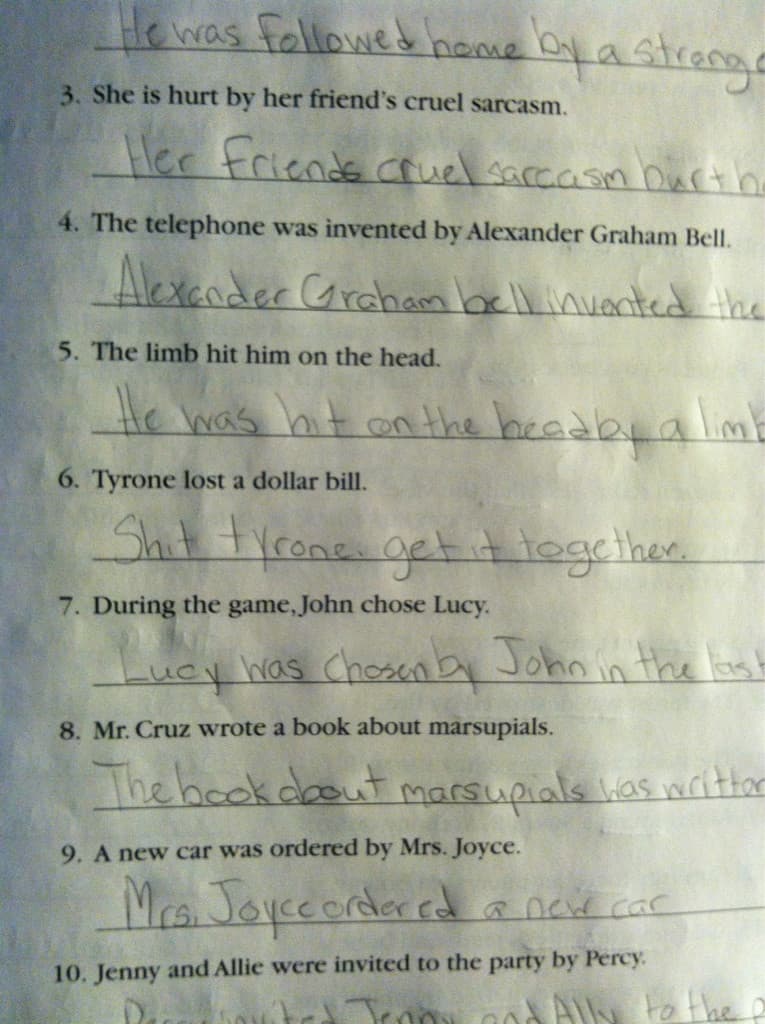 He was followed home by a strange
3. She is hurt by her friend's cruel sarcasm.
Her friends cruel sarcasm hurt he
4. The telephone was invented by Alexander Graham Bell.
Alexander Graham bell invented the
5. The limb hit him on the head.
He was hit on the head by a limb
6. Tyrone lost a dollar bill.
Shit tyrone. get it together.
7. During the game, John chose Lucy.
Lucy was chosen by John in the last
8. Mr. Cruz wrote a book about marsupials.
The book about marsupials was writton
9. A new car was ordered by Mrs. Joyce.
Mrs. Joyce ordered a new car
10. Jenny and Allie were invited to the party by Percy.
Percy invited Jenny and Ally to the p